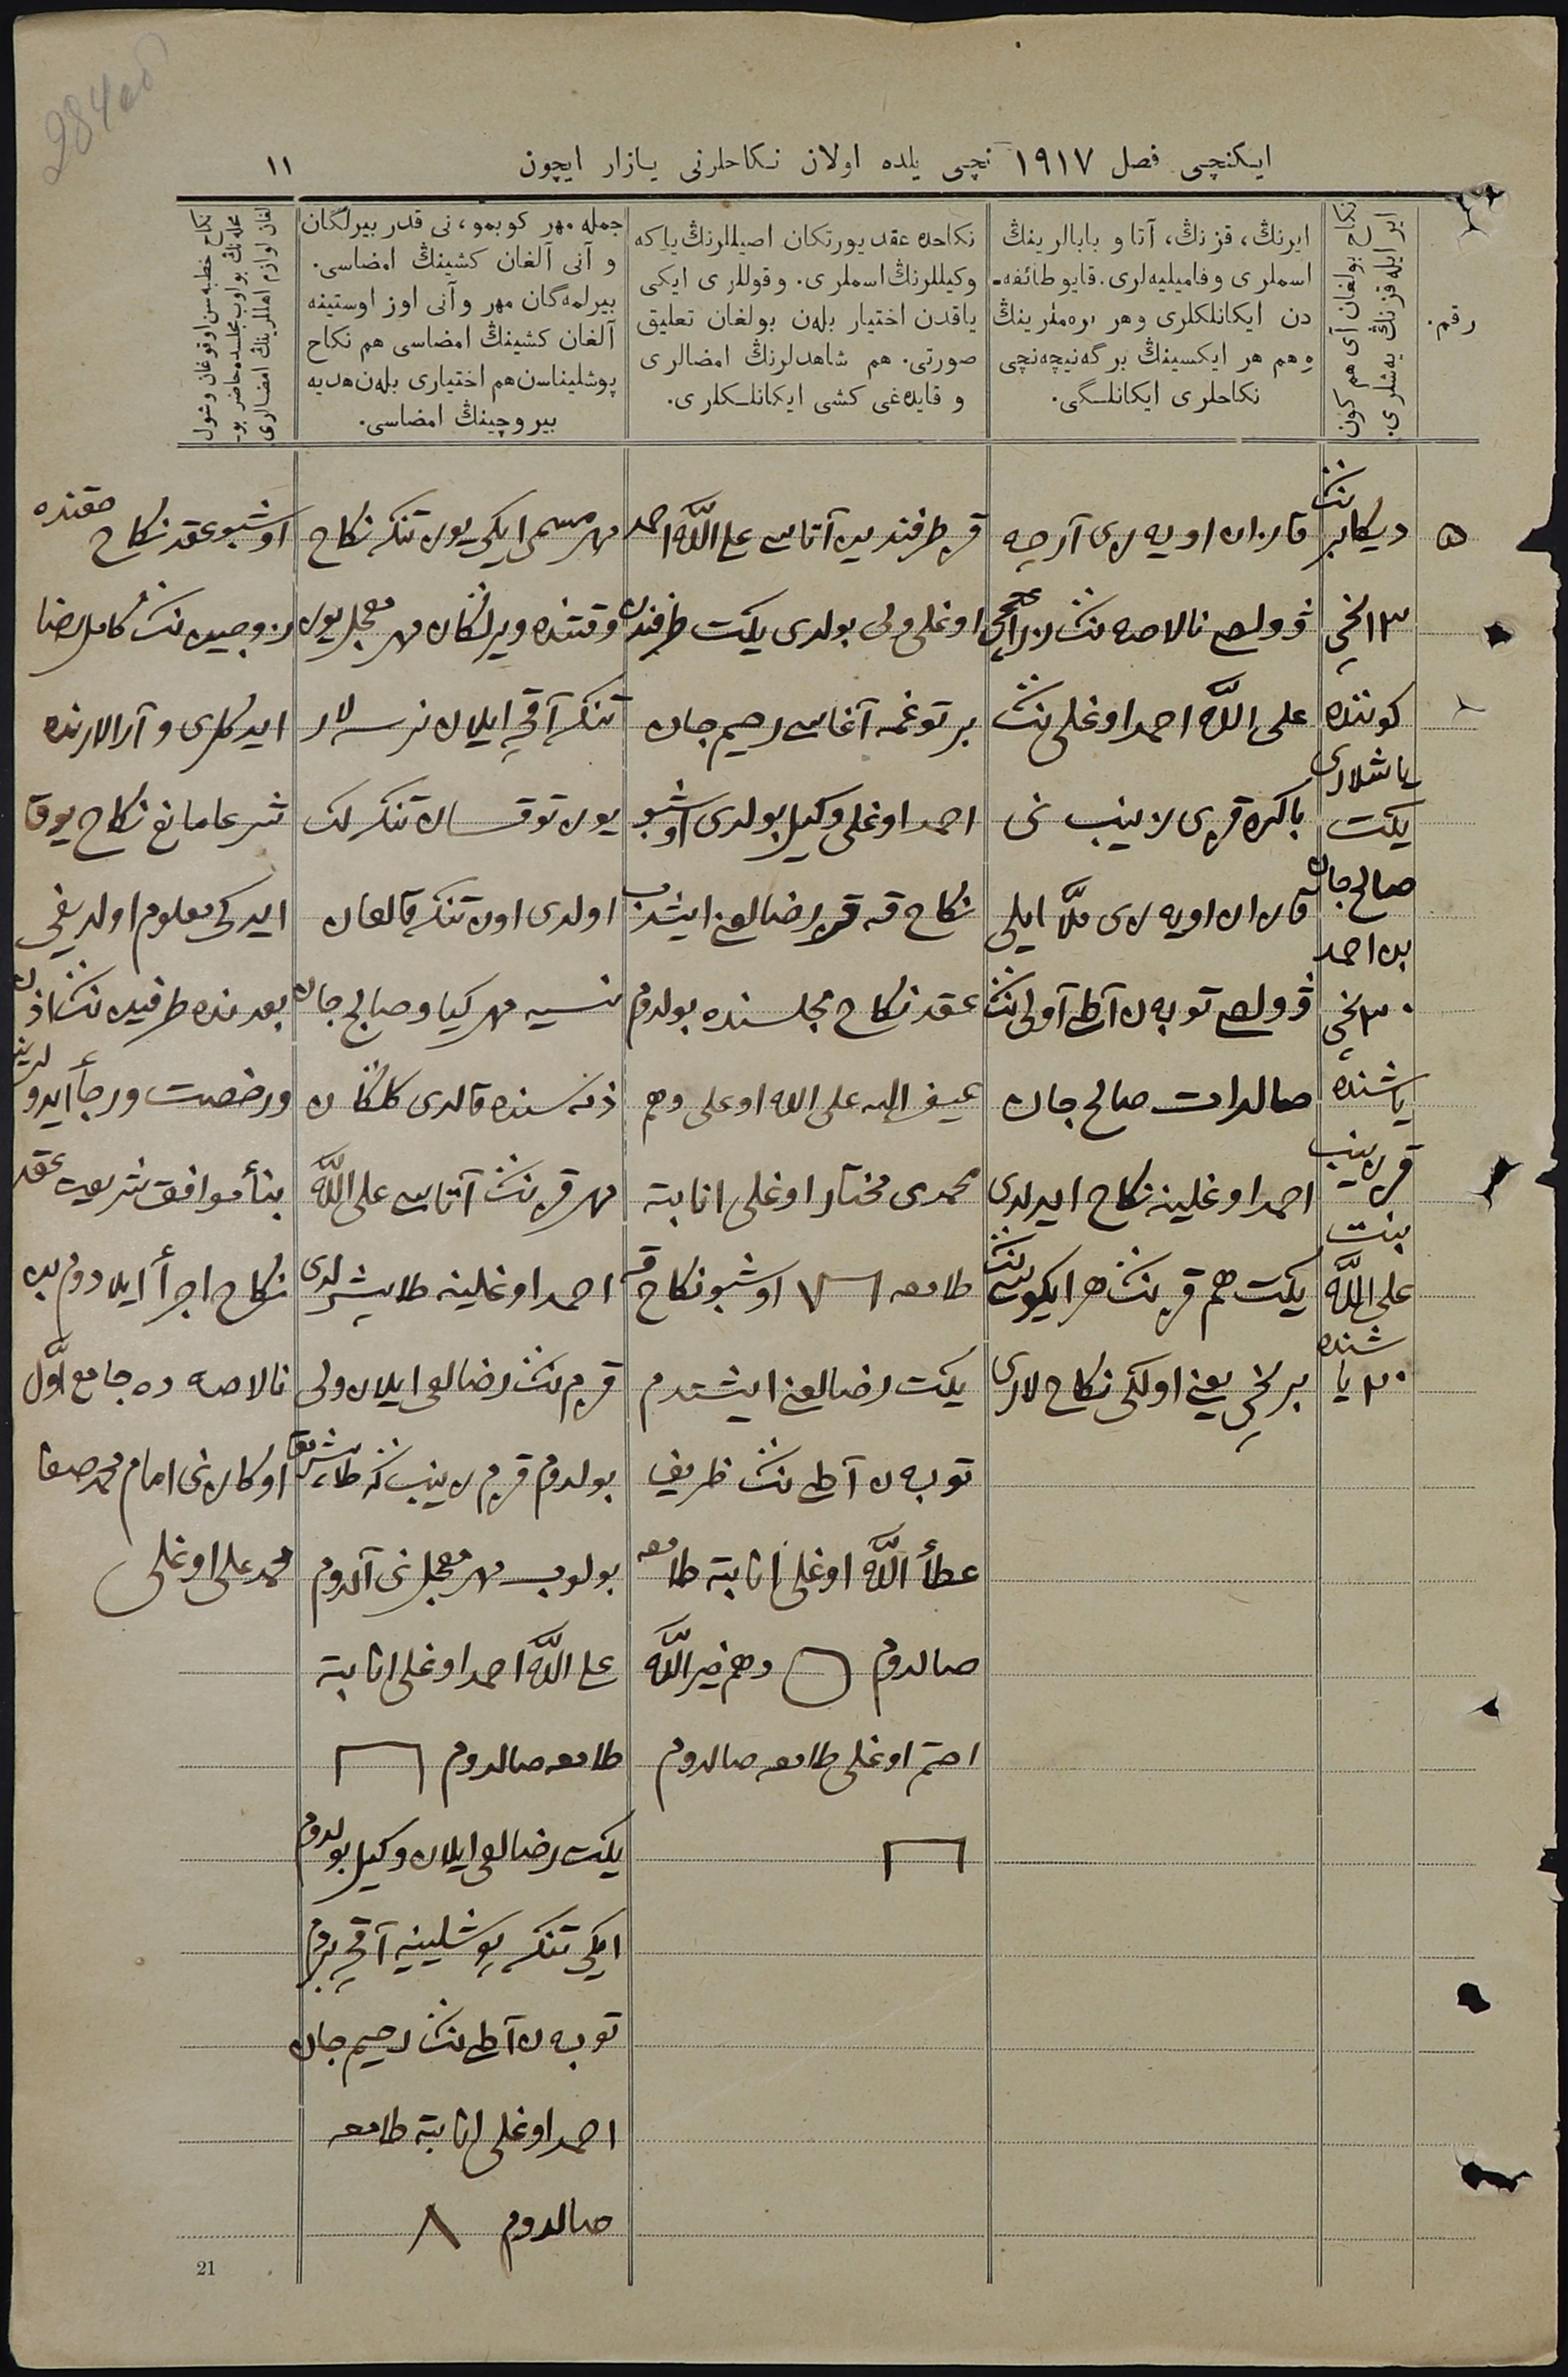 284 об
ایکنچی فصل ۱۹۱۷ نچی یلده اولان نکاحلرنی یازار ایچون
۱۱
رقم.
نکاح بولغان آی هم کون
ایر ایله قزنڭ یه‌شلری.
ایرنڭ، قزنڭ، آتا و بابالرینڭ
اسملری وفامیلیه‌لری. قایو طائفه‌-
دن ایکانلکلری وهر
وهم هر ایکسینڭ برگه‌نیچه‌نچی
نکاحلری ایکانلـگی.
نکاحده عقد یورتکان اصیللرنڭ یاکه
وکیللرنڭ اسملری. وقوللری ایکی
یاقدن اختیار بله‌ن بولغان تعلیق
صورتی. هم شاهدلرنڭ امضالری
و قایده‌غی کشی ایکانلـکلری.
جمله مهر کوبمو، نی قدر بیرلگان
و آنی آلغان کشینڭ امضاسی.
بیرلمه‌گان مهر وآنی اوز اوستینه
آلغان کشینڭ امضاسی هم نکاح
پوشلیناسن هم اختیاری بله‌ن هدیه
بیروچینڭ امضاسی.
نکاح خطبه‌سن اوقوغان وشول
محله‌نڭ بواوب مجلسده حاضر بو-
لغان لوازم اهللرینڭ امضالری
۵
دیکابر ننڭ
۱۳ نچی
کوننده
یاشلاری
یکت
صالح جان
بن احمد
۳۰ نچی
یاشنده
قز زینب
بنت
علی اللّه
۲۰ یاشنده
قازان اویه زی آرچه
ڤولصے نالاصه ننڭ
علی اللّه احمد اوغلی ننڭ
باکره قزی زینب نی
قازان اویه زی ملّا ایلی
ڤولصے توبه‌ن آطی آولی ننڭ
صالدات صالح جان
احمد اوغلینه نکاح ایدلدی
یکت هم قزننڭ هر ایکوسی ننڭ
برنچی یعنی اولکی نکاح لاری
قز طرفندین آتاسی علی اللّه احمد
اوغلی ولی بولدی یکت طرفندن
بر توغمه آغاسی رحیم جان
احمد اوغلی وکیل بولدی اوشبو
نکاح قه قز رضالغن ایشدب
عقد نکاح مجلسنده بولدوم
علی الله اوغلی وهم
محمدی مختار اوغلی اثابتة
طامعه اوشبو نکاح قه
یکت رضالغن ایشتدم
توبه‌ن آطی ننڭ ظریف
عطأ اللّه اوغلی اثابتة طامعه
صالدوم وهم خیر اللّه
اوغلی طامعه صالدوم
مهر مسمی ایکی یوز تنکه نکاح
وقتنده ویرلکان مهر معجل یوز
تنکه آقچه ایلان نرسه لار
یوز توقسان تنکه لک
اولدی اون تنکه قالغان
نسیه مهر کیاو صالح جان
ذمه سنده قالدی کلکان
مهر قزننڭ آتاسی علی اللّه
احمد اوغلینه طابشرلدی
قزم ننڭ رضالغی ایلان ولی
بولدوم قزم زینب که
بولوب مهر معجل نی آلدوم
علی اللّه احمد اوغلی اثابتة
طامعه صالدوم
یکت رضالغی ایلان وکیل بولدوم
ایکی تنکه پوشلینه آقچه بردم
توبه‌ن آطی ننڭ رحیم جان
احمد اوغلی اثابتة طامعه
صالدوم
اوشبو عقد نکاح حقنده
زوجین ننڭ کامل رضا
ایدکلری و آرالارنده
شرعا مانع نکاح یوق
ایدکی معلوم اولدیغی
بعدنده طرفین ننڭ اذن
ورخصت ورجأ ایدولرینه
بنأ موافق شریعت عقد
نکاح اجرأ ایلادوم بن
نالاصه ده جامع اوّل
اوکازنی امام محمد صفا
محمد علی اوغلی
21